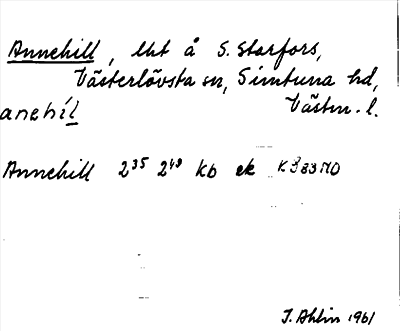 Annehill, lht å S. Starfors,
Västerlövsta sn, Simtuna hd,
anehíl Västm. l.
Annehill 2³⁵ 2⁴⁹ kb ek
J. Ahlin 1961